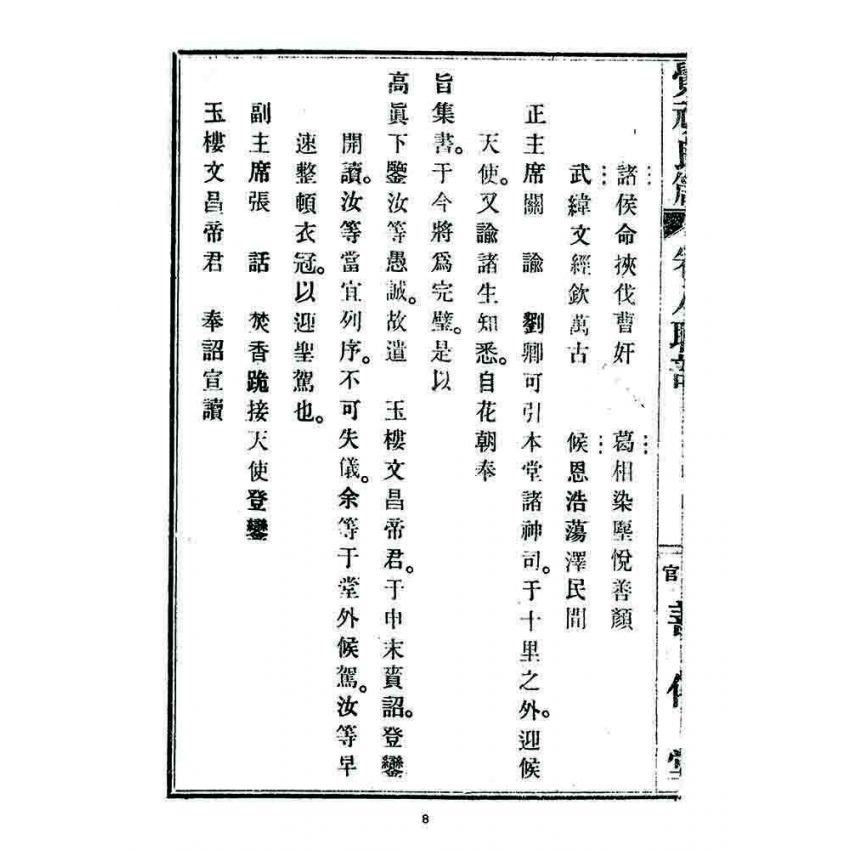 諸侯命挾伐曹奸　葛相染塵悅善顏
武緯文經欽萬古　候恩浩蕩澤民間
正主席關　諭　劉卿可引本堂諸神司。于十里之外。迎候
天使。又諭諸生知悉。自花朝奉
旨集書。于今將為完璧。是以
高眞下鑒汝等愚誠。故遣　玉樓文昌帝君。于申末賷詔。登鸞
開讀。汝等當宜列序。不可失儀。余等于堂外候駕。汝等早
速整頓衣冠。以迎聖駕也。
副主席張　話　焚香跪接天使登鸞
玉樓文昌帝君　奉詔宣讀
官
善
堂
8